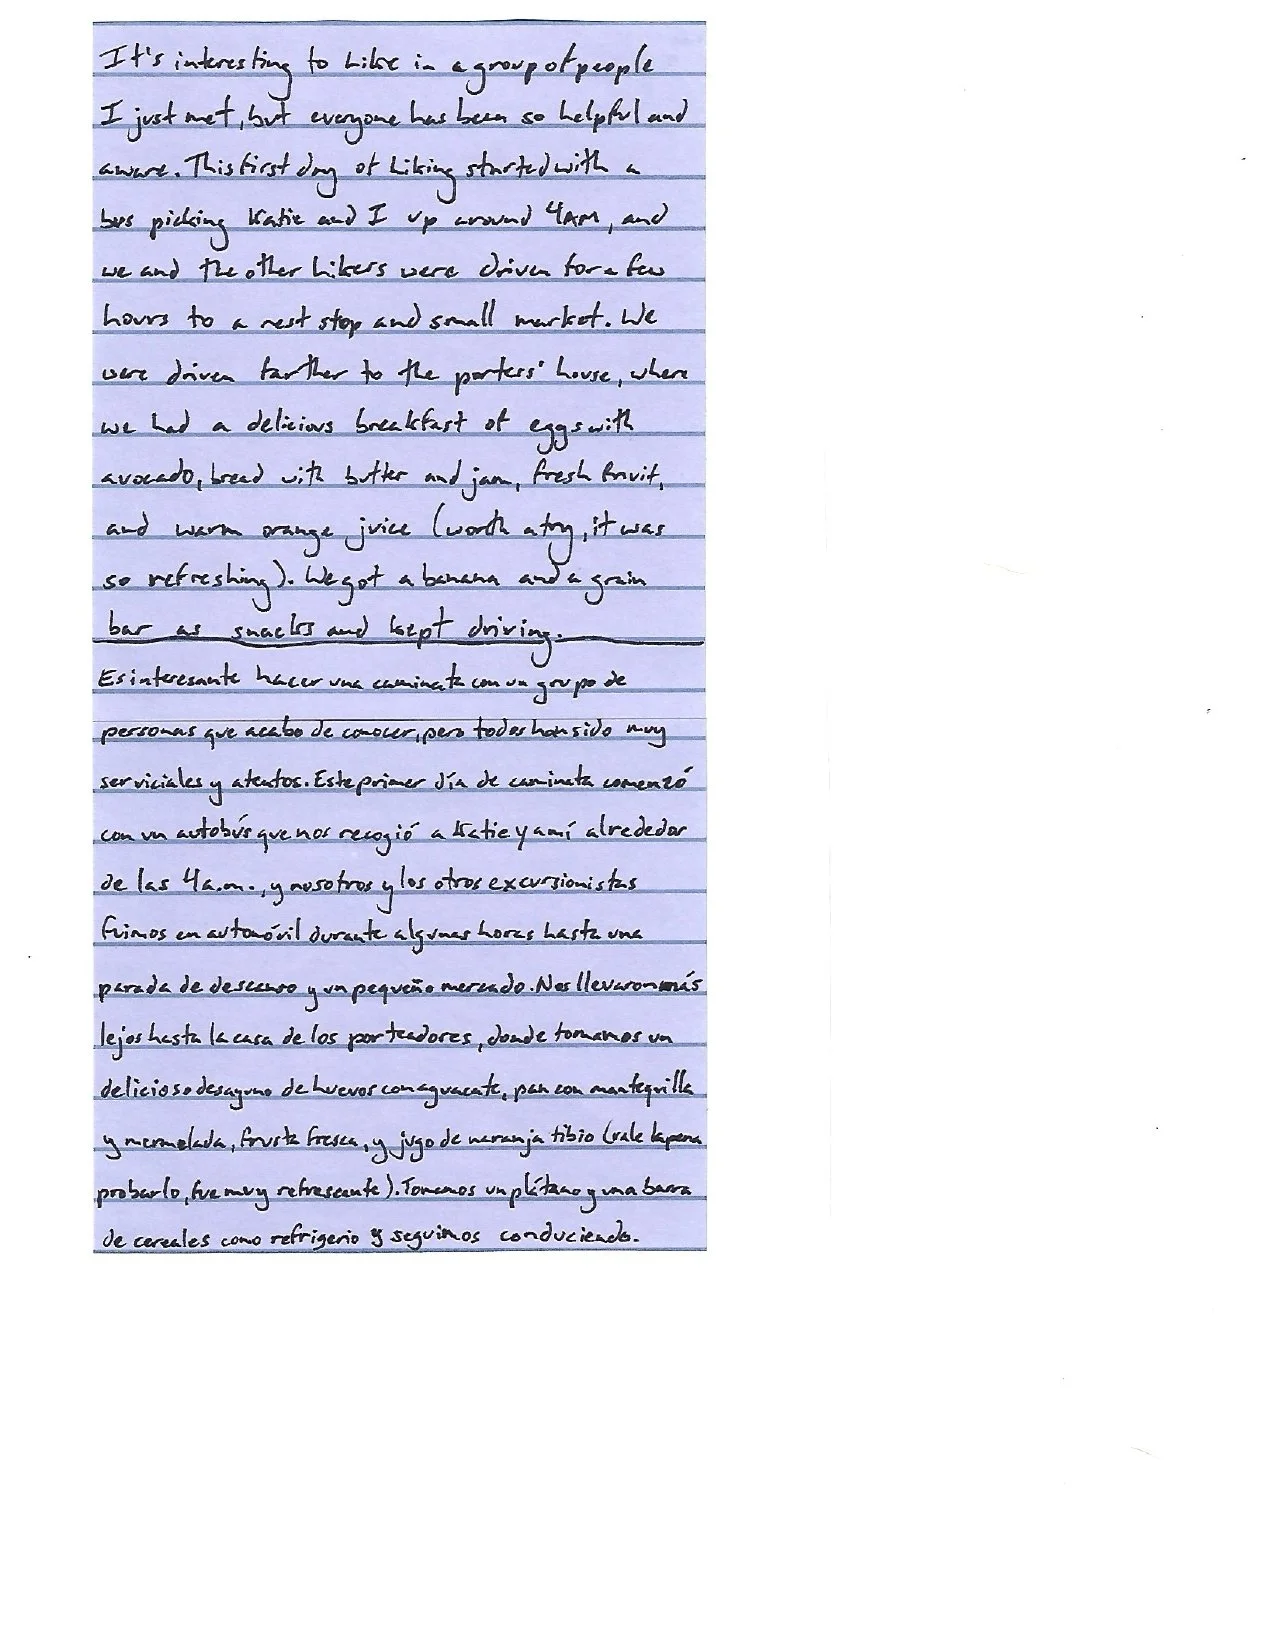 It's interesting to hike in a group of people
I just met, but everyone has been so helpful and
aware. This first day of hiking started with a
bus picking Katie and I up around 4AM, and
we and the other hikers were driven for a few
hours to a rest stop and small market. We
were driven farther to the porters' house, where
we had a delicious breakfast of eggs with
avocado, bread with butter and jam, fresh fruit,
and warm orange juice (worth a try, it was
so refreshing). We got a banana and a grain
bar as snacks and kept driving.
Es interesante hacer una caminata con un grupo de
personas que acabo de conocer, pero todos han sido muy
serviciales y atentos. Este primer día de caminata comenzó
con un autobús que nos recogió a Katie y a mí alrededor
de las 4 a.m., y nosotros y los otros excursionistas
fuimos en automóvil durante algunas horas hasta una
parada de descanso y un pequeño mercado. Nos llevaron más
lejos hasta la casa de los porteadores, donde tomamos un
delicioso desayuno de huevos con aguacate, pan con mantequilla
y mermelada, fruta fresca, y jugo de naranja tibio (vale la pena
probarlo, fue muy refrescante). Tomamos un plátano y una barra
de cereales como refrigerio y seguimos conduciendo.